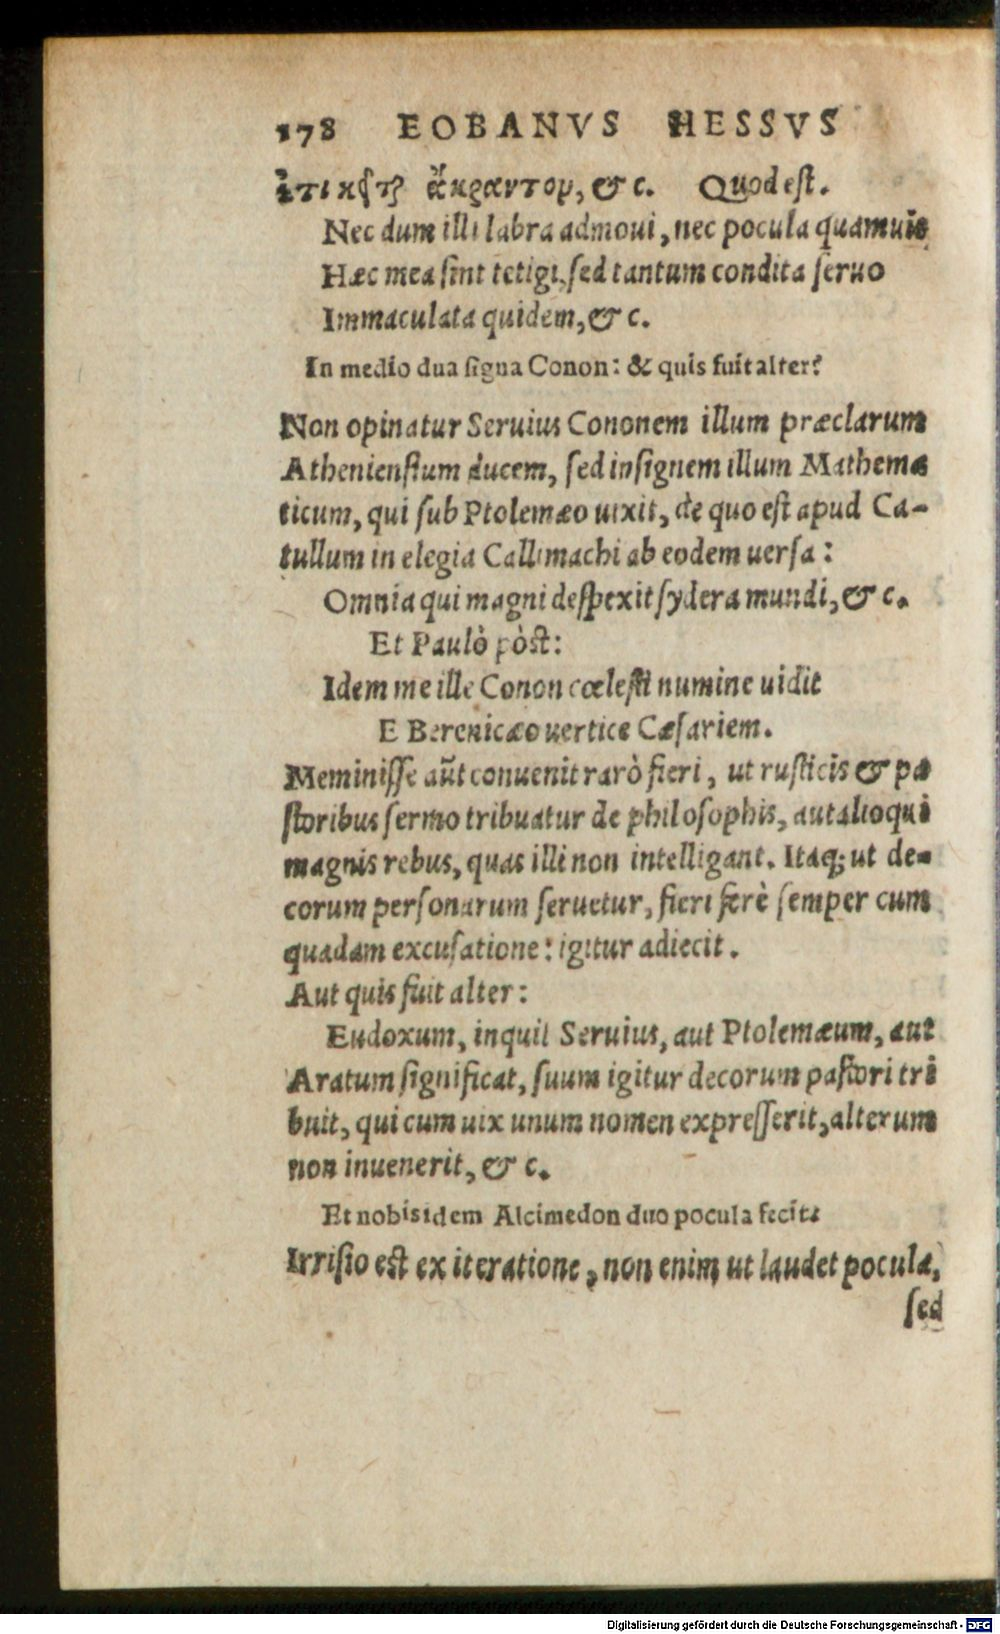 178 EOBANVS HESSVS
ἔτι κεῖται ἄκραντον, & c. Quod est.
Nec dum illi labra admoui, nec pocula quamuis
Hæc mea sint tetigi, sed tantum condita seruo
Immaculata quidem, & c.
In medio dua signa Conon: & quis fuit alter?
Non opinatur Seruius Cononem illum præclarum
Atheniensium ducem, sed insignem illum Mathema
ticum, qui sub Ptolemæo uixit, de quo est apud Ca-
tullum in elegia Callimachi ab eodem uersa:
Omnia qui magni despexit sydera mundi, & c.
Et Paulò pòst:
Idem me ille Conon cœlesti numine uidit
E Berenicæo uertice Cæsariem.
Meminisse aūt conuenit rarò fieri, ut rusticis & pa
storibus sermo tribuatur de philosophis, aut alioqui
magnis rebus, quas illi non intelligant. Itaq; ut de-
corum personarum seruetur, fieri ferè semper cum
quadam excusatione: igitur adiecit.
Aut quis fuit alter:
Eudoxum, inquit Seruius, aut Ptolemæum, aut
Aratum significat, suum igitur decorum pastori tri
buit, qui cum uix unum nomen expresserit, alterum
non inuenerit, & c.
Et nobis idem Alcimedon duo pocula fecit:
Irrisio est ex iteratione, non enim ut laudet pocula,
sed
Digitalisierung gefördert durch die Deutsche Forschungsgemeinschaft - DFG